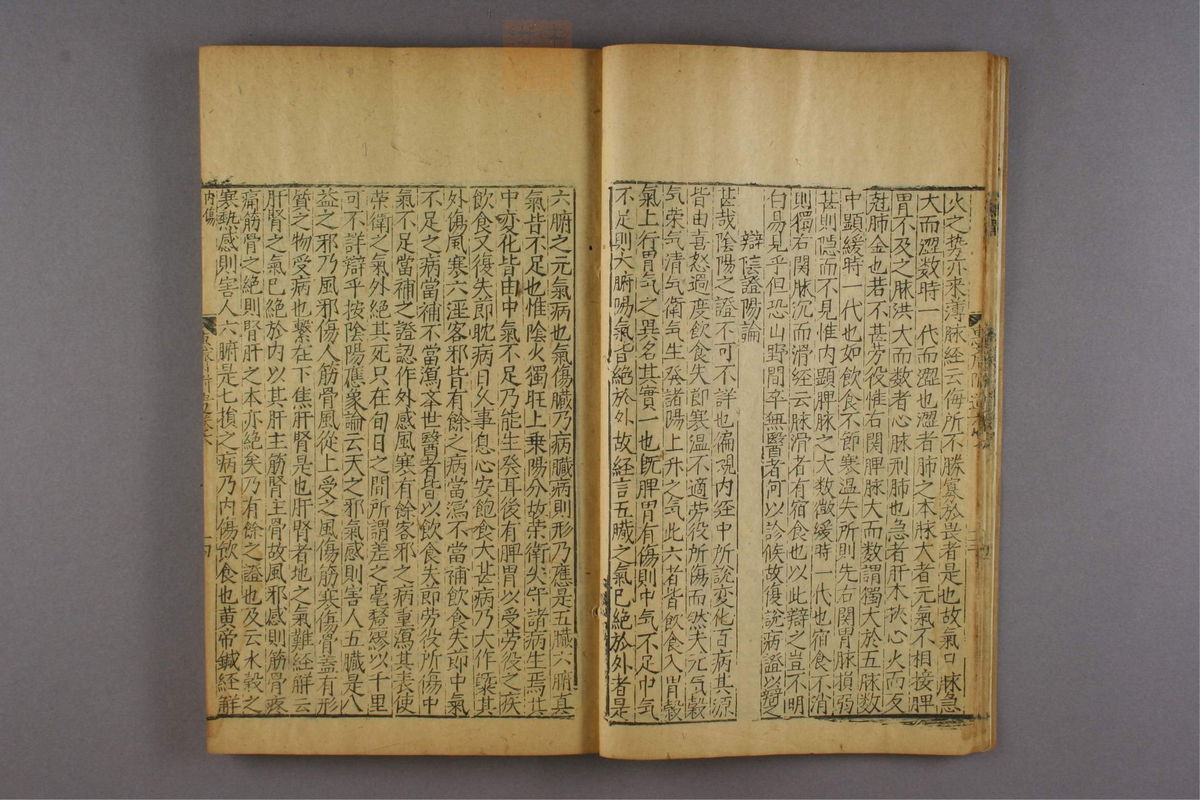 火之势亦來薄脉經云侮所不勝寡於畏者是也故氣口脉急
大而澀数時一代而澀也澀者肺之本脉大者元氣不相接脾
胃不及之脉洪大而数者心脉刑肺也急者肝木挾心火而反
尅肺金也若不甚劳役惟右関脾脉大而数謂獨大於五脉数
中顕緩時一代也如飲食不節寒温失所則先右関胃脉損弱
甚則隠而不見惟内顕脾脉之大数微緩時一代也宿食不消
則獨右関脉沉而滑經云脉滑者有宿食也以此辯之豈不明
白易見乎但恐山野間卒無醫者何以診候故復說病證以辯之
辯陰證陽論
甚哉陰陽之證不可不詳也徧覌内經中所說变化百病其源
皆由喜怒過度飲食失節寒温不適劳役所傷而然夫元气穀
气荣气清气衛气生發諸陽上升之气此六者皆飲食入胃穀
氣上行胃气之異名其實一也旣脾胃有傷則中气不足中气
不足則六腑陽氣皆絕於外故経言五臟之氣已絕於外者是
六腑之元氣病也氣傷臟乃病臟病則形乃應是五臟六腑真
氣皆不足也惟陰火獨旺上乗陽分故荣衛失守諸病生焉其
中変化皆由中氣不足乃能生發耳後有脾胃以受劳役之疾
飲食又復失節耽病日久事息心安飽食太甚病乃大作槩其
外傷風寒六淫客邪皆有餘之病當瀉不當補飲食失節中氣
不足之病當補不當瀉今世醫者皆以飲食失節劳役所傷中
氣不足當補之證認作外感風寒有餘客邪之病重瀉其表使
荣衛之氣外絕其死只在旬日之間所謂差之毫釐繆以千里
可不詳辯乎按陰陽應象論云天之邪氣感則害人五臟是八
益之邪乃風邪傷人筋骨風從上受之風傷筋寒傷骨盖有形
質之物受病也繫在下焦肝腎是也肝腎者地之氣難経觧云
肝腎之氣已絕於内以其肝主筋腎主骨故風邪感則筋骨疼
痛筋骨之絕則腎肝之本亦絕矣乃有餘之證也又云水穀之
寒熱感則害人六腑是七損之病乃内傷飲食也黄帝鍼経觧
内傷